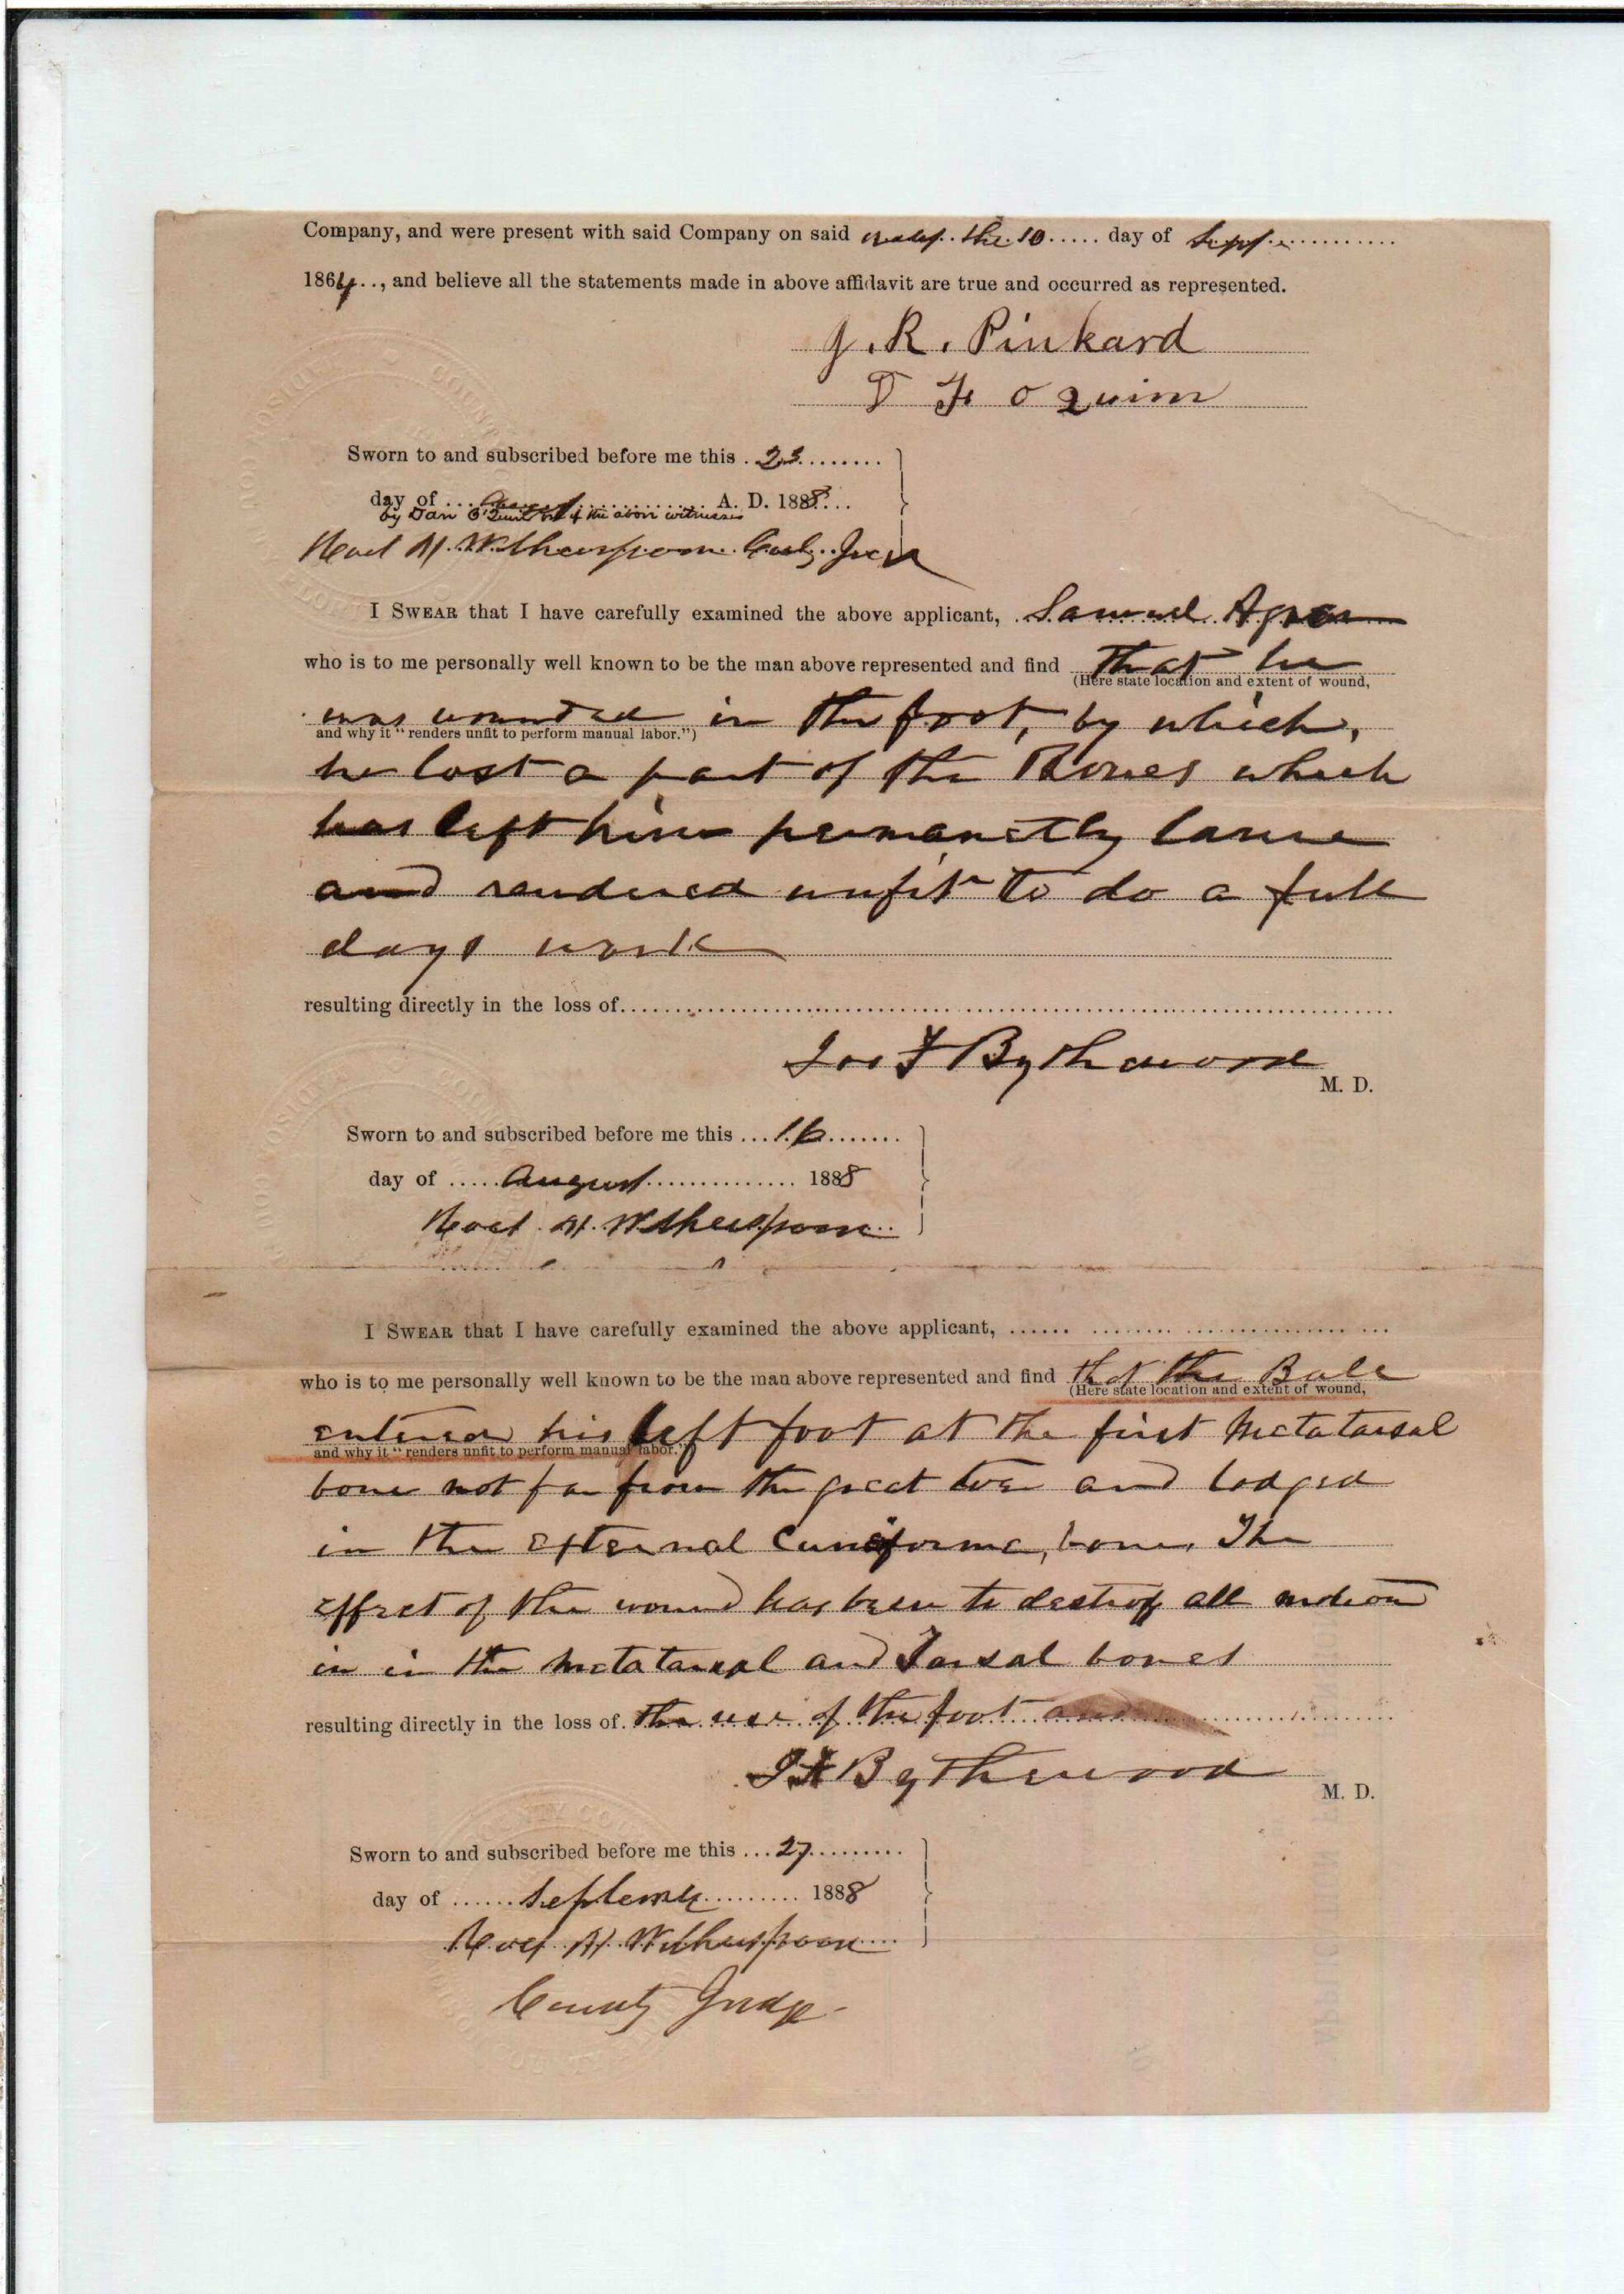 Company, and were present with said Company on said the 10 day of Sept
1864, and believe all the statements made in above affidavit are true and occurred as represented.
J. R. Pinkard
D F O Quinn
Sworn to and subscribed before me this 23
day of August A. D. 1888
by Dan O'Quinn of the above witnesses
H. Witherspoon
I SWEAR that I have carefully examined the above applicant, Samuel
who is to me personally well known to be the man above represented and find that he
(Here state location and extent of wound,
was wounded in the foot, by which,
and why it "renders unfit to perform manual labor.")
he lost a part of the Bones which
has left him permanetly lame
and rendered unfit to do a full
days work
resulting directly in the loss of
Jos F Bythewood
M. D.
Sworn to and subscribed before me this 16
day of August 1888
H. Witherspoon
I SWEAR that I have carefully examined the above applicant,
who is to me personally well known to be the man above represented and find that the Ball
(Here state location and extent of wound,
entered his left foot at the first Metatarsal
and why it "renders unfit to perform manual labor.")
bone not far from the great toe and lodged
in the External Cuneiforme bone. The
effect of the wound has been to destroy all motion
in in the Metatarsal and Tarsal bones
resulting directly in the loss of the use of the foot
J F Bythewood
M. D.
Sworn to and subscribed before me this 27
day of September 1888
H. Witherspoon
County Judge